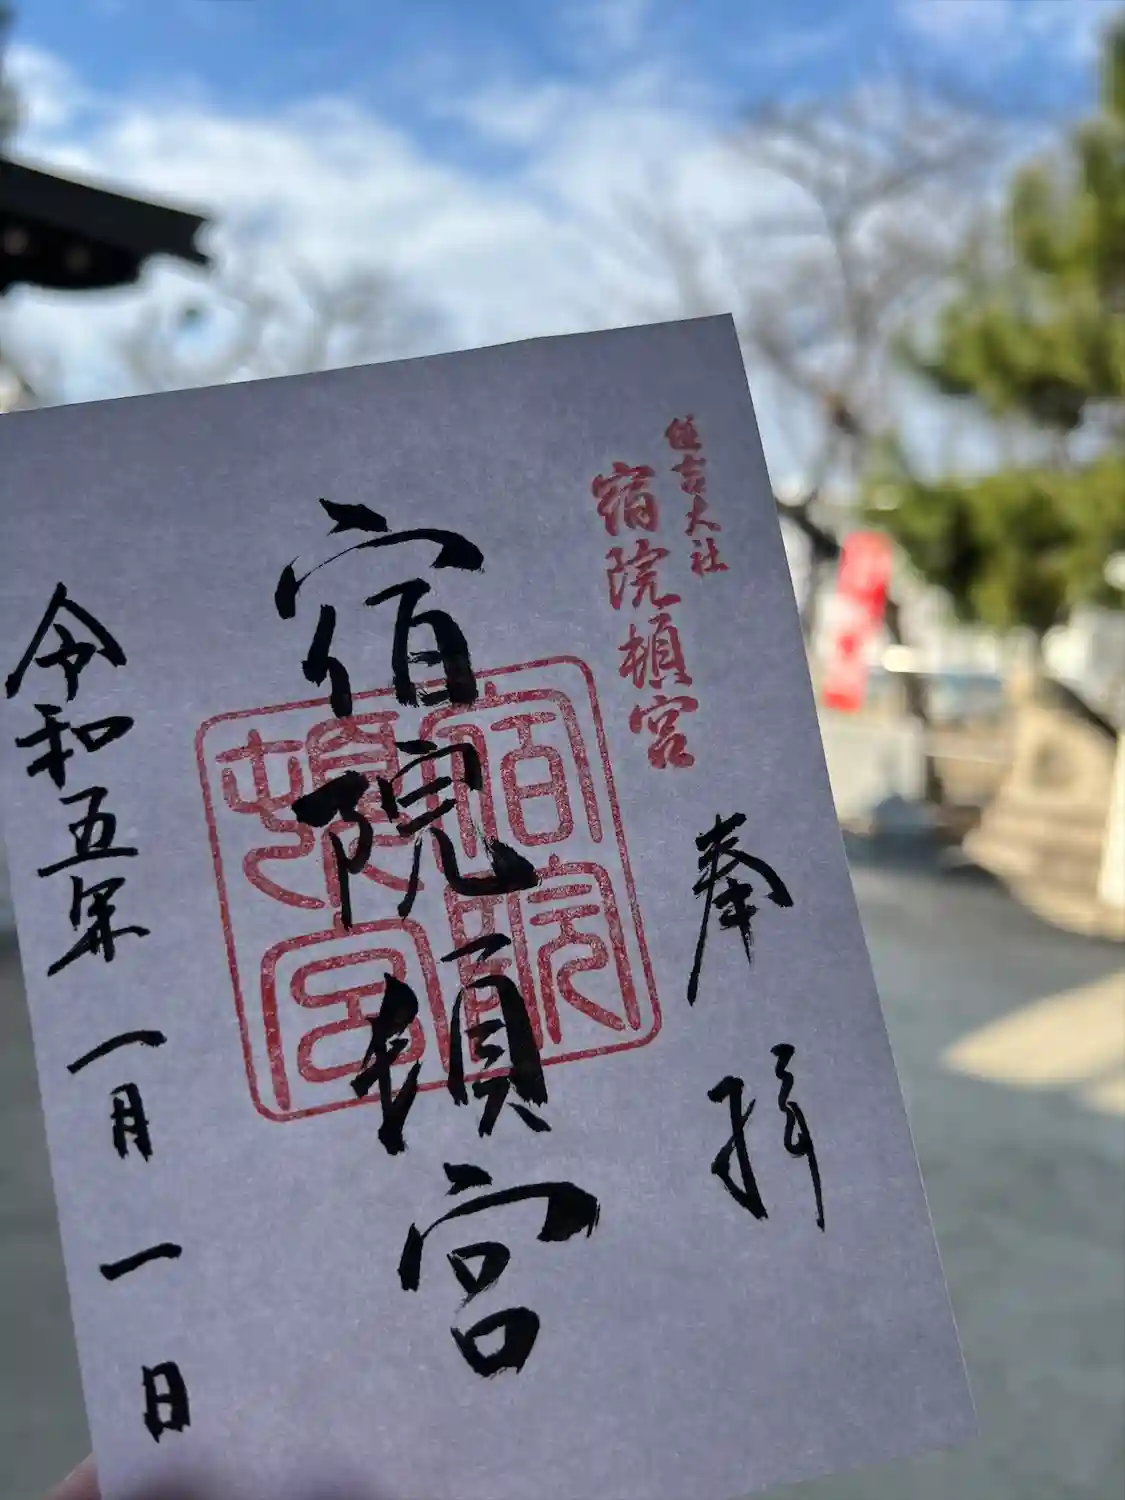 住吉大社
宿院頓宮
奉拝
宿院頓宮
宿院
頓宮
令和五年一月一日